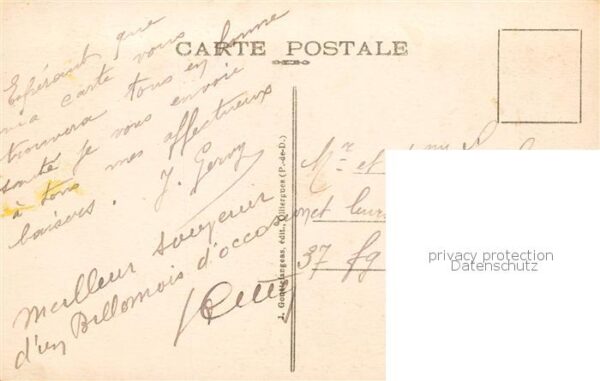 CARTE POSTALE
Espérant que
ma carte vous
trouvera tous en bonne
santé je vous envoie
à tous mes affectueux
baisers. J. Gervy
Meilleur souvenir
d'un Billomois d'occasion
J. Gouttefangeas, édit., Olliergues (P.-de-D.)
Mr et
et leurs
37 fg
privacy protection
Datenschutz